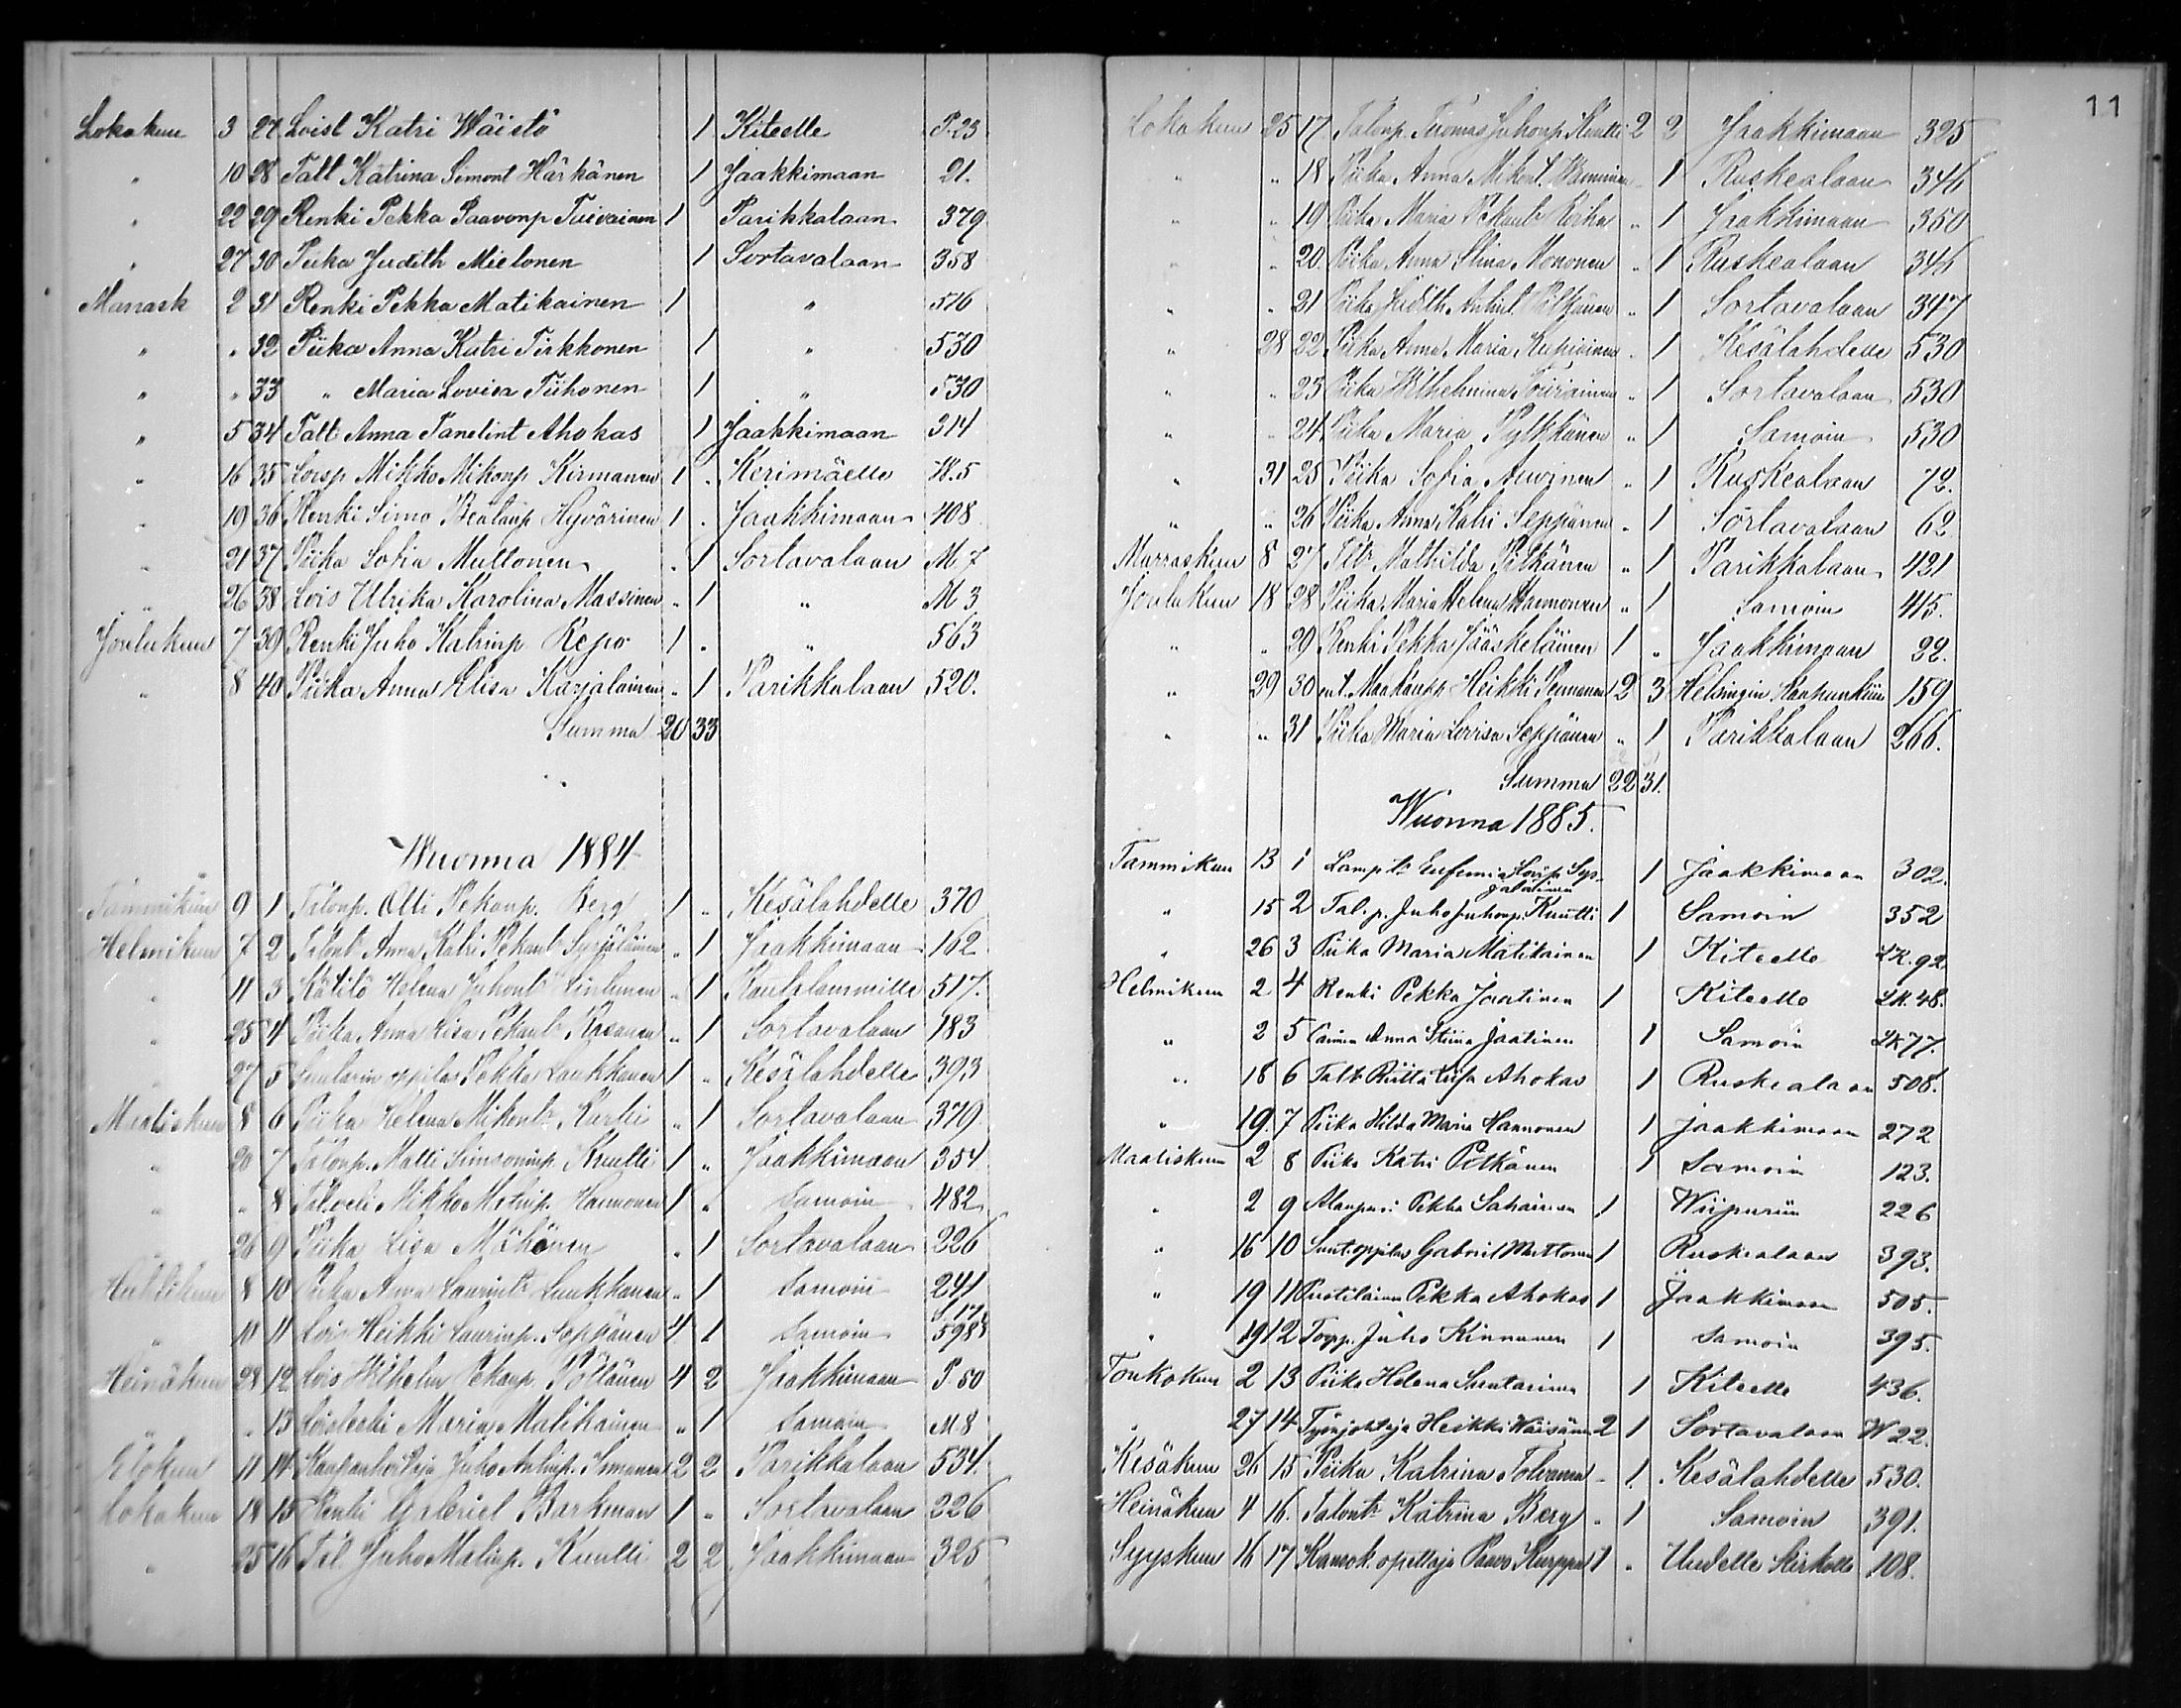 Lokakuu 3 27 Loist Katri Wäistö 1 Kiteelle P. 23
" 10 28 Talt Katrina Simont Härkänen 1 Jaakkimaan 21.
" 22 29 Renki Pekka Paavonp Toivainen 1 Parikkalaan 379
" 27 30 Piika Judith Mielonen 1 Sortavalaan 358
Marrask 2 31 Renki Pekka Matikainen 1 " 576
" " 32 Piika Anna Katri Tirkkonen 1 " 530
" " 33 " Maria Lovisa Tiihonen 1 " 530
" 5 34 Talt Anna Tanelint Ahokas 1 Jaakkimaan 314
" 16 35 Loisp Mikko Mikonp Kirmanen 1 " Kerimäelle K. 5
" 19 36 Renki Simo Beatanp Hyvärinen 1 " Jaakkimaan 408
" 21 37 Piika Sofia Multonen " 1 Sortavalaan M 7
" 26 38 Lois Ulrika Karolina Massinen " 1 " M 3
Joulukuu 7 39 Renki Juho Katrinp Repo 1 " " 563
" 8 40 Piika Anna Elisa Karjalainen " 1 Parikkalaan 520.
Summa 20 33
Wuonna 1884
Tammikuu 9 1 Talonp. Olli Pekanp. Berg 1 " Kesälahdelle 370
Helmikuu 7 2 Talont Anna Katri Pekant Syrjäläinen " 1 Jaakkimaan 162
" 11 3 Kätilö Helena Juhont 1 Rautalammille 517.
" 25 4 Piika Anna Liisa Pekant Rosanen " 1 Sortavalaan 183
" 27 5 oppilas Pekka Laukkanen 1 " Kesälahdelle 393
Maaliskuu 8 6 Piika Helena Mikont Kurki " 1 Sortavalaan 379
" 20 7 Talonp. Matti Simonp. Kuutti 1 " Jaakkimaan 354
" " 8 Tal.veli Mikko Matinp. Hannonen 1 " Samoin 482
" 26 9 Piika Liisa Möhönen " 1 Sortavalaan 226
Huhtikuu 8 10 Piika Anna Laurint Laukkanen " 1 Samoin 241
" 10 11 Lois Heikki Laurinp. Seppänen 4 1 Samoin 598
Heinäkuu 28 12 Lois Wilhelm Pekanp. Pöllänen 4 2 Jaakkimaan P. 50
" " 13 Loisleski Maria Matikainen " 1 Samoin M 8
Elokuu 11 14 Juho Antinp. Immonen 2 2 Parikkalaan 534.
Lokakuu 14 15 Renki Gabriel Barkman 1 " Sortavalaan 226
" 25 16 Tal. Juho Matinp. Kuutti 2 2 Jaakkimaan 325
11
Lokakuu 25 17 Talonp. Tuomas Juhonp Kuutti 2 2 Jaakkimaan 325
" " 18 Piika Anna Mikont. " 1 Ruskealaan 346
" " 19 Piika Maria Pekant " 1 Jaakkimaan 350
" " 20. Piika Anna Stina Mononen " 1 Ruskealaan 346
" " 21 Piika Judith Antint. Pitkänen " 1 Sortavalaan 347
" 28 22 Piika Anna Maria Kupiainen " 1 Kesälahdelle 530
" " 23 Piika Wilhelmina Toiviainen " 1 Sortavalaan 530
" " 24 Piika Maria Pylkkänen " 1 Samoin 530
" 31 25 Piika Sofia Auvinen " 1 Ruskealaan 72.
" " 26 Piika Anna Katri Seppänen " 1 Sortavalaan 62
Marraskuu 8 27 Mathilda Pitkänen " 1 Parikkalaan 421
Joulukuu 18 28 Piika Maria Helena Hannonen " 1 Samoin 415.
" " 29 Renki Pekka Jääskeläinen 1 " Jaakkimaan 22.
" 29 30 ent. Maakaupp Heikki Pennanen 2 3 Helsingin Kaupunkiin 159
" " 31 Piika Maria Lovisa Seppänen " 1 Parikkalaan 266.
Summa 22 31.
Wuonna 1885.
Tammikuu 13 1 Lampt Eufemia 1 Jaakkimaan 302.
" 15 2 Tal. p. Juho Juhonp. Kuutti 1 Samoin 352
" 26 3 Piika Maria Matikainen 1 Kiteelle LK. 92
Helmikuu 2 4 Renki Pekka Jaatinen 1 Kiteelle LK. 48.
" 2 5 Anna Stiina Jaatinen 1 Samoin LK 77.
" 18 6 Talt Riitta Liisa Ahokas 1 Ruskealaan 508.
" 19. 7 Piika Hilda Maria Hannonen 1 Jaakkimaan 272
Maaliskuu 2 8 Piika Katri Pitkänen 1 Samoin 123.
" 2 9 Pekka Sahainen 1 Wiipuriin 226
" 16 10 Gabriel Muttonen 1 Ruskealaan 393.
" 19 11 Pekka Ahokas 1 Jaakkimaan 505.
" 19 12 Torpp. Juho Kinnunen 1 Samoin 395.
Toukokuu 2 13 Piika Helena 1 Kiteelle 436.
" 27 14 Työnjohtaja Heikki Wäisänen 2 1 Sortavalaan W 22.
Kesäkuu 26 15 Piika Katrina Tolvanen " 1. Kesälahdelle 530.
Heinäkuu 4 16. Talont Katrina Berg " 1 Samoin 391.
Syyskuu 16 17 Kansak. opettaja Paavo Kurppa 1 " Uudelle Kirkolle 108.